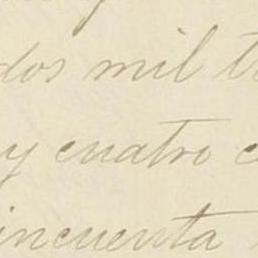 dos mil t
y cuatro c
incuenta